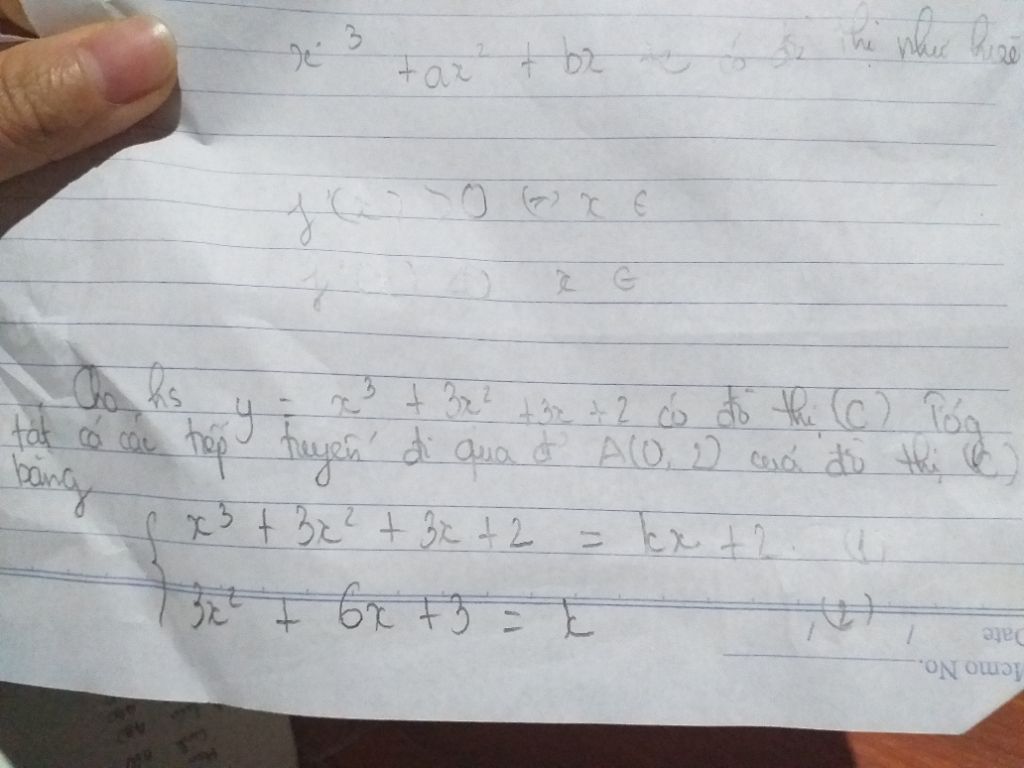 x³ + ax² + bx có thị như hình
f'(x) > 0 (=) x ∈
x ∈
Cho hs y = x³ + 3x² + 3x + 2 có đồ thị (C) Tổg
tất cả các tiếp tuyến đi qua đ' A(0, 2) cuả đồ thị (C)
bằng
x³ + 3x² + 3x + 2 = kx + 2 (1)
3x² + 6x + 3 = k (2)
Date / /
Memo No.